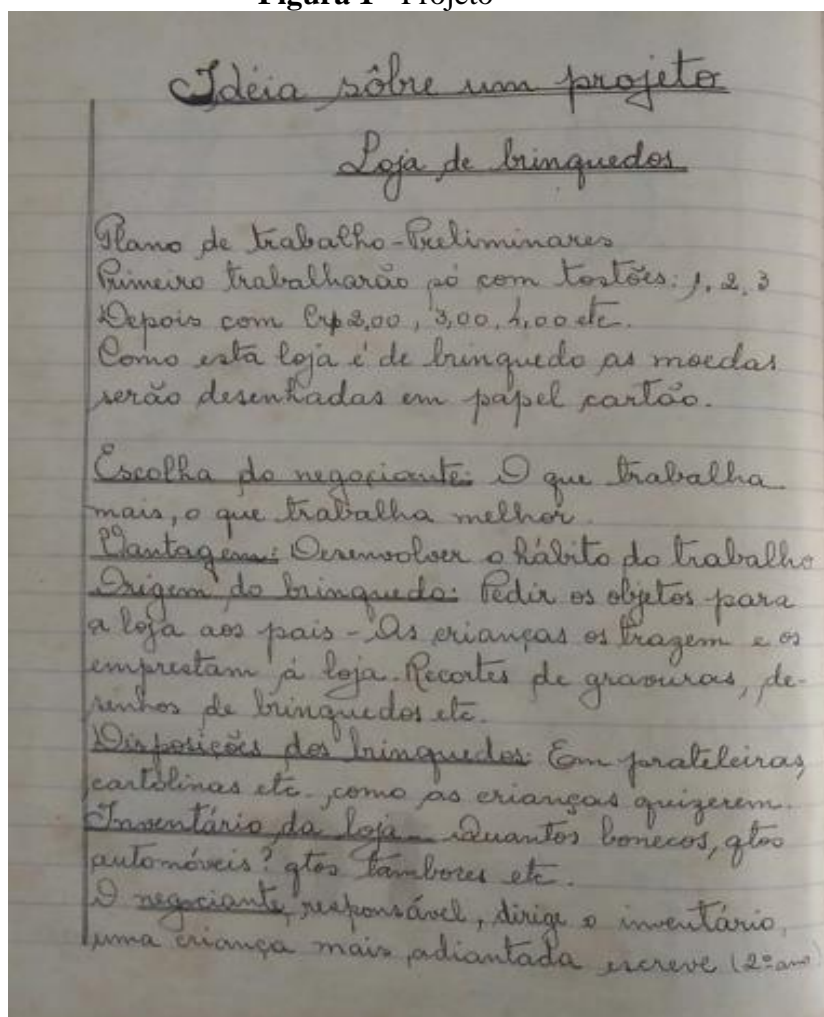 Figura 1 - Projeto
Idéia sôbre um projeto
Loja de brinquedos
Plano de trabalho - Preliminares
Primeiro trabalharão só com tostões: 1, 2, 3
Depois com Cr$ 2,00, 3,00, 4,00 etc.
Como esta loja é de brinquedo as moedas
serão desenhadas em papel cartão.
Escolha do negociante: O que trabalha
mais, o que trabalha melhor.
Vantagem: Desenvolver o hábito do trabalho
Origem do brinquedo: Pedir os objetos para
a loja aos pais - As crianças os trazem e os
emprestam à loja. Recortes de gravuras, de-
senhos de brinquedos etc.
Disposições dos brinquedos: Em prateleiras,
cartolinas etc., como as crianças quizerem.
Inventário da loja - Quantos bonecos, qtos
automóveis? qtos tambores etc.
O negociante, responsável, dirige o inventário,
uma criança mais adiantada escreve (2º ano)